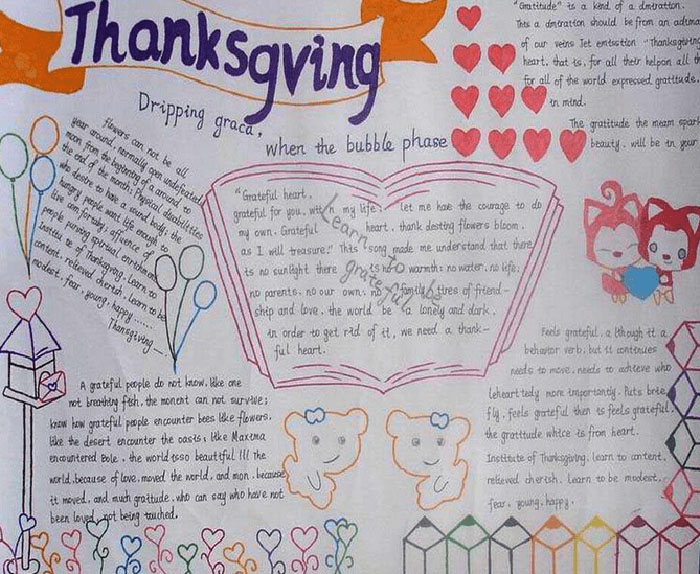 Thanksgving
Dripping graca,
when the bubble phase
"Gratitude" is a kind of a
This a should be from an
of our veins Jet "Thanksgiving
heart, that is, for all their helpon all th
for all of the world expressed gratitude,
in mind.
The gratitude the mean spark
beauty, will be in your
flowers can not be all
year around, normally upon undefeated
moon, from the beginning of a around to
the end of the month; Physical disabilities
who desire to have a sound body; the
hungry people want life enough to
live on, for tidy; affluence of
people pursing spiritual enrichment
Institute of Thanksgiving, Learn to
content, relieved cherish, learn to be
modest, fear, young, happy......
Thanksgiving......
"Grateful heart,
grateful for you, with my life, Let me have the courage to do
my own. Grateful heart, thank desting flowers bloom,
as I will treasure." This song made me understand that there
is no sunlight there is no warmth; no water, no life;
no parents, no our own; no family tires of friend-
ship and love, the world be a lonely and dark.
in order to get rad of it, we need a thank-
ful heart.
Learn to be
grateful
A grateful people do not know, like one
not breathing fish, the moment can not survive;
know how grateful people encounter bees like flowers,
like the desert encounter the oasis; like Maxima
encountered Bole, the world isso beautiful !!! the
world, because of love, moved the world, and mon, because
it moved, and much gratitude, who can say who have not
been loved, not being touched.
Feels grateful, a lthough it a
behavior verb, but it continues
needs to move, needs to achieve who
leheart tedly more importantly. Puts brie
fly, feels grateful then is feels grateful,
the gratitude whice is from heart.
Institute of Thanksgiving, learn to content,
relieved cherish, Learn to be modest,
fear, young, happy.